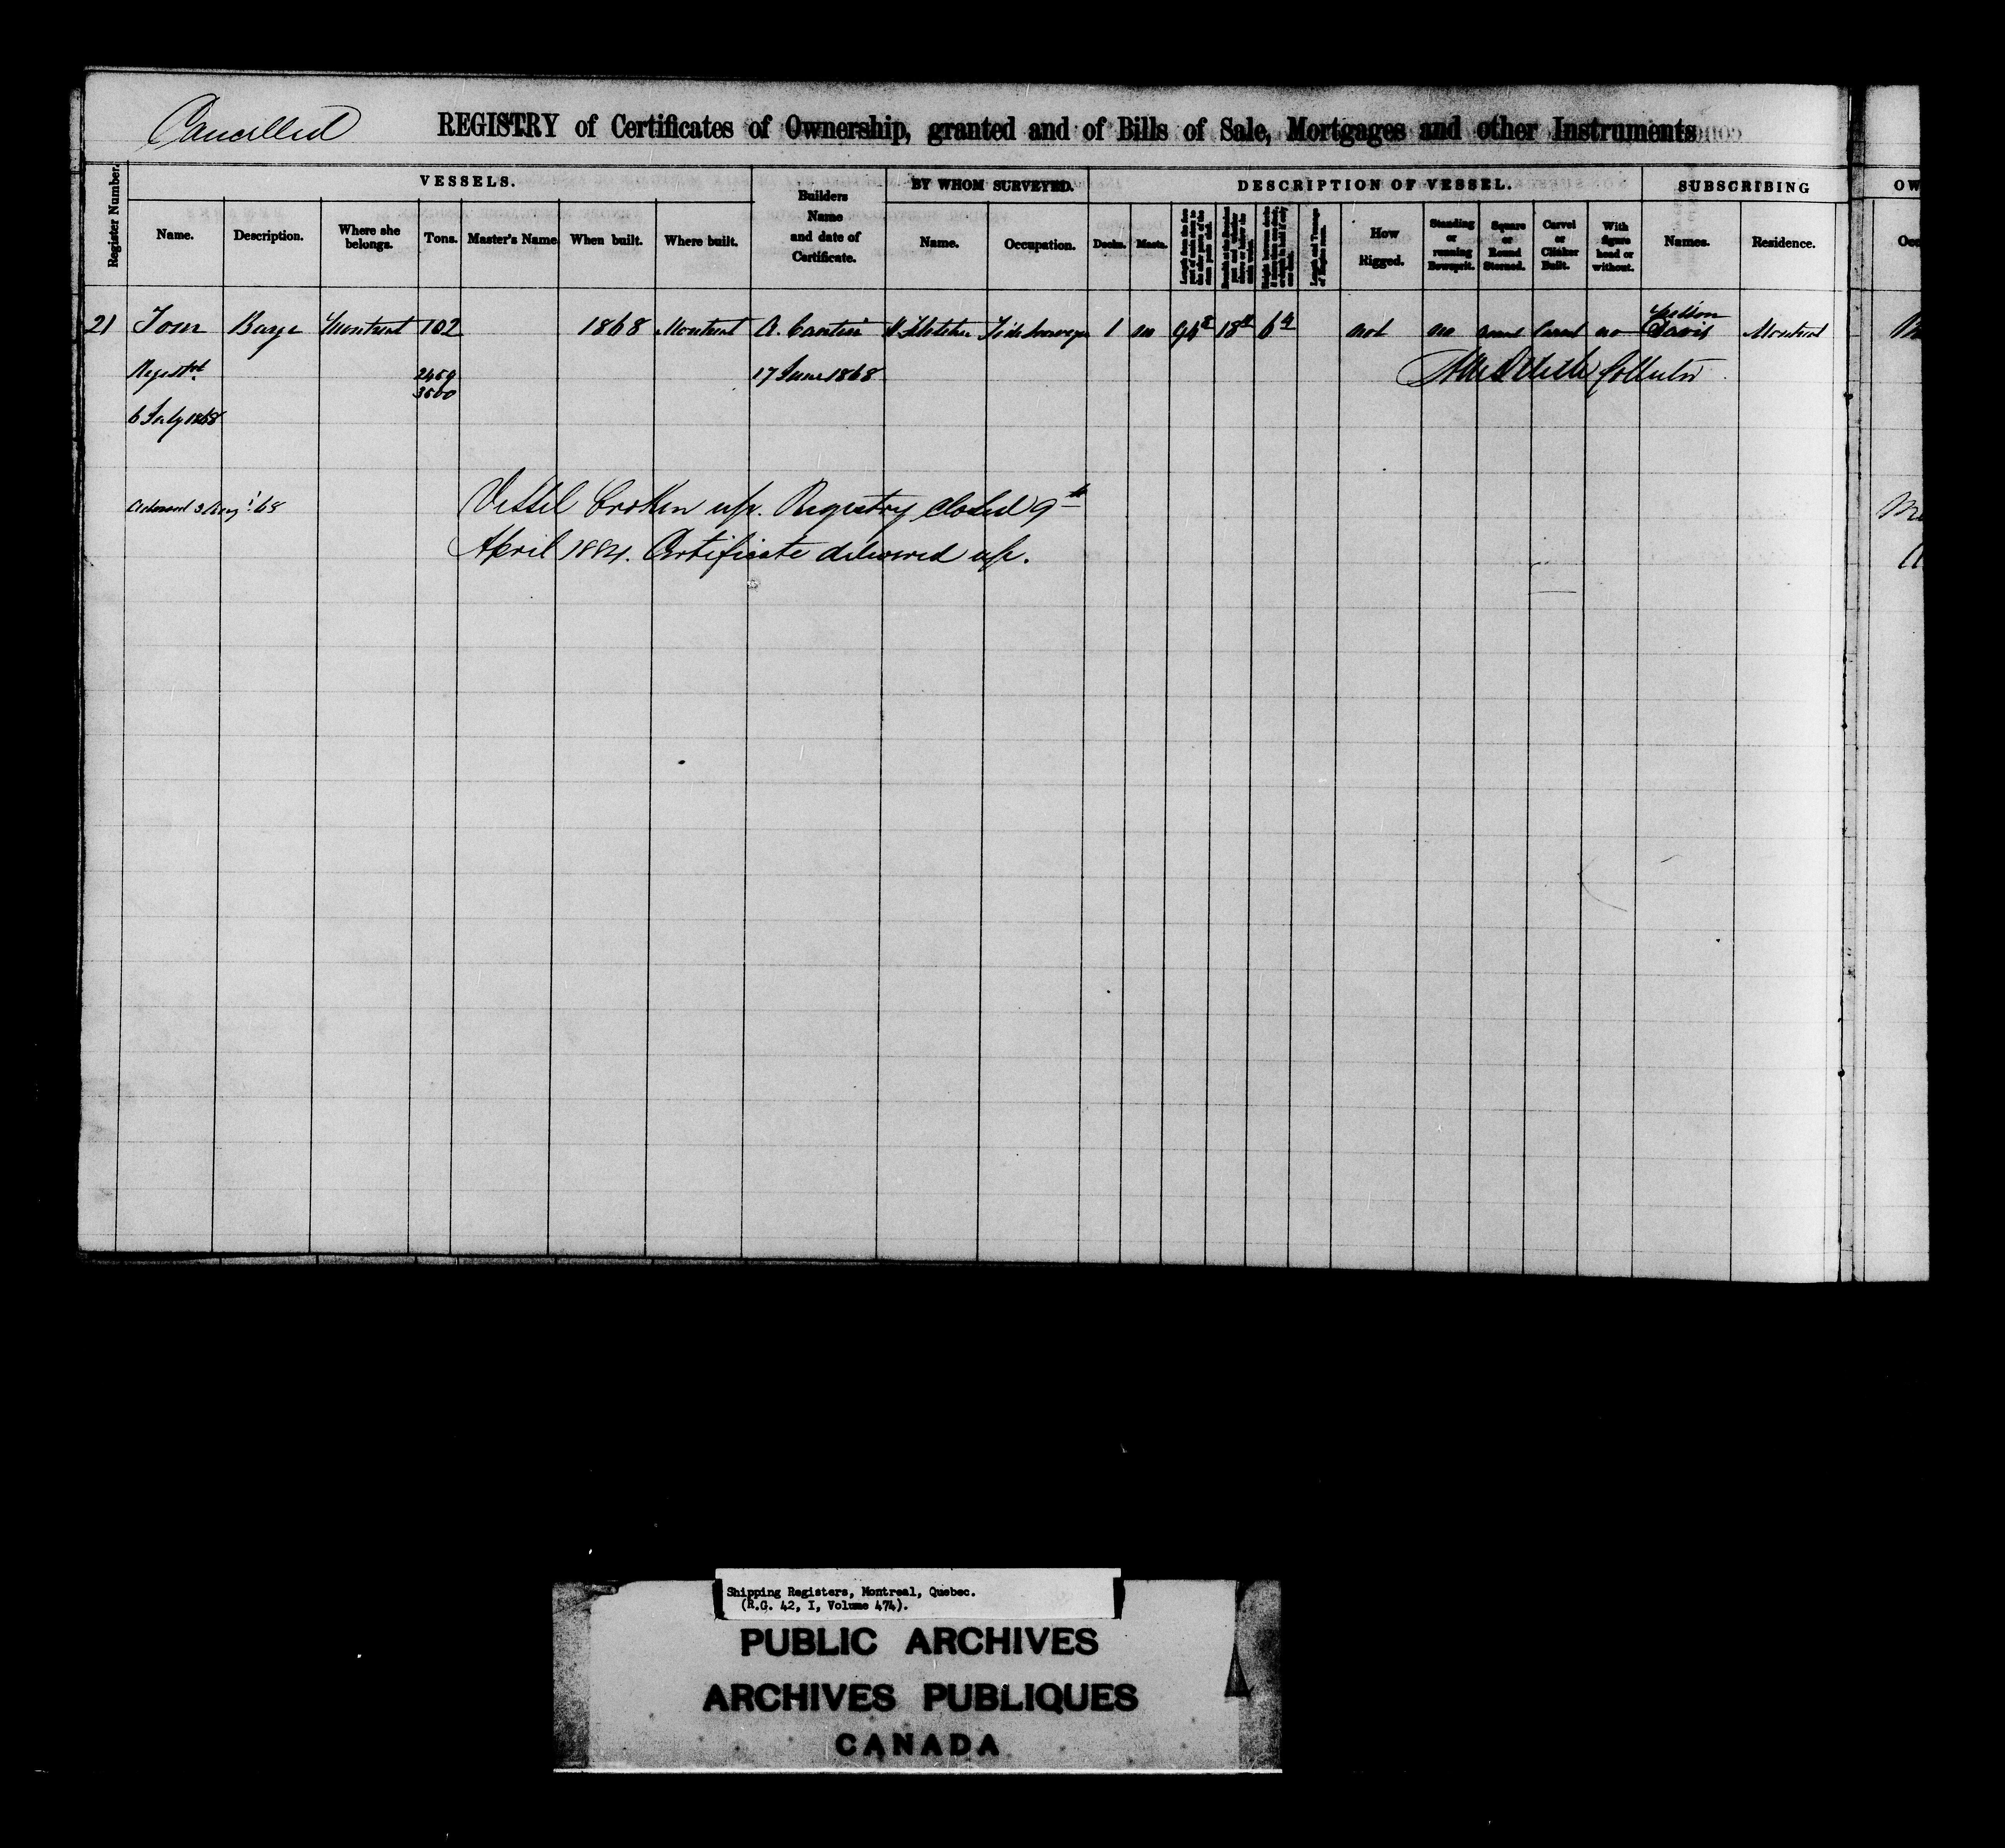 Cancelled
REGISTRY of Certificates of Ownership, granted and of Bills of Sale, Mortgages and other Instruments
VESSELS. BY WHOM SURVEYED. DESCRIPTION OF VESSEL. SUBSCRIBING OW
Register Number. Name. Description. Where she belongs. Tons. Master's Name When built. Where built. Builders Name and date of Certificate. Name. Occupation. Decks. Masts. How Rigged. Standing or running Bowsprit. Square or Round Sterned. Carvel or Clinker Built. With figure head or without. Names. Residence. Occ
21 Tom Barge Montreal 102 1868 Montreal A. Cantin Fletcher 1 no 18 6 not no Carvel no Davis Montreal
Regist 2459 17 June 1868 Collector
3500
6 July 1868
Vessel broken up. Registry closed 9th
April 1884. Certificate delivered up.
Shipping Registers, Montreal, Quebec.
(R.G. 42, I, Volume 474).
PUBLIC ARCHIVES
ARCHIVES PUBLIQUES
CANADA